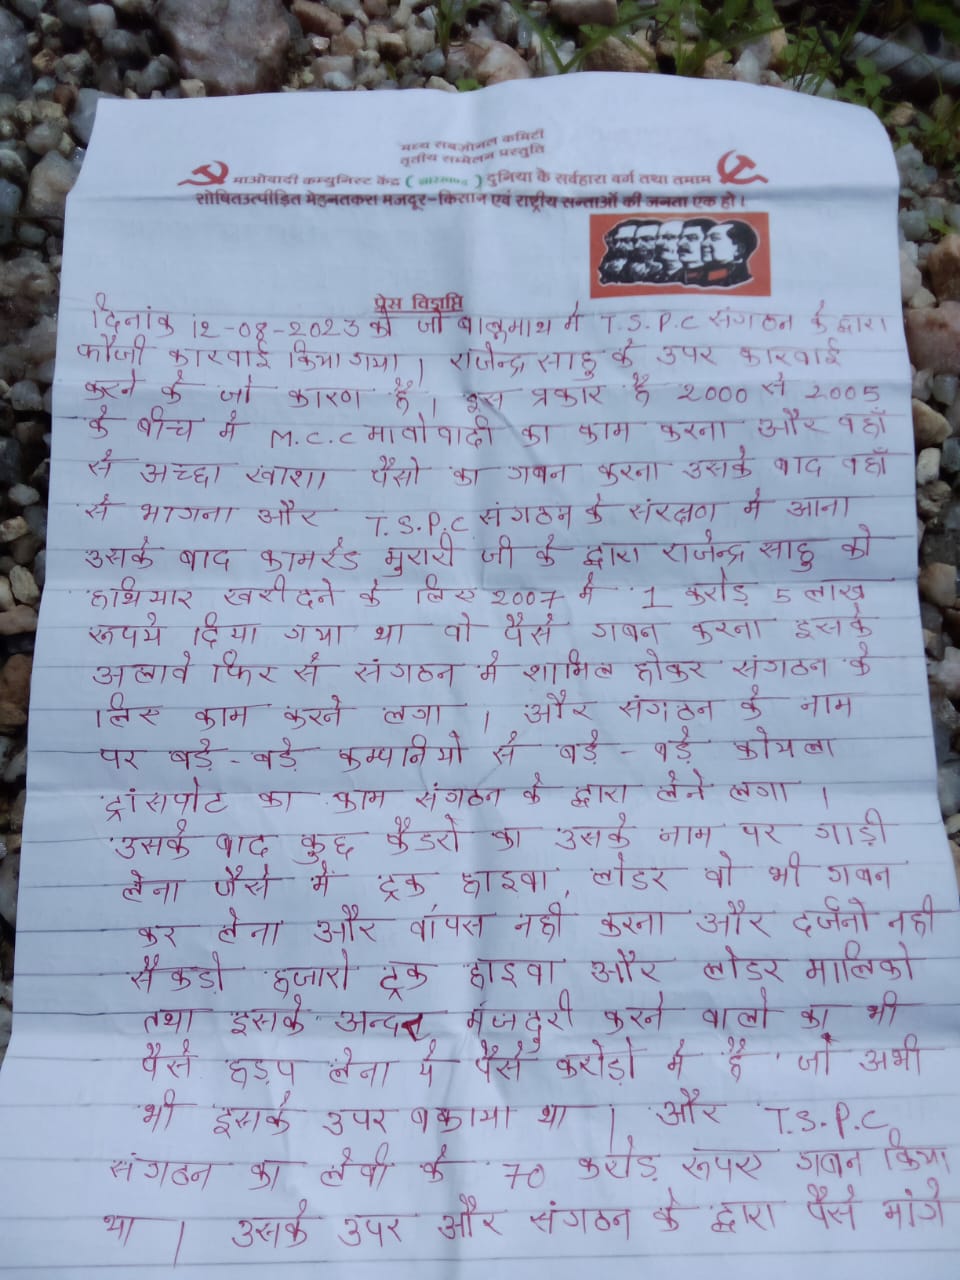 मध्य सबज़ोनल कमिटी
तृतीय सम्मेलन प्रस्तुति
माओवादी कम्युनिस्ट केंद्र (झारखण्ड) दुनिया के सर्वहारा वर्ग तथा तमाम
शोषितउत्पीड़ित मेहनतकश मजदूर-किसान एवं राष्ट्रीय सन्ताओं की जनता एक हो।
प्रेस विज्ञप्ति
दिनांक 12-08-2023 को जो बालुमाथ में T.S.P.C संगठन के द्वारा
फौजी कारवाई किया गया। राजेन्द्र साहु के उपर कारवाई
करने के जो कारण है। इस प्रकार है 2000 से 2005
के बीच में M.C.C मावोवादी का काम करना और वहाँ
से अच्छा खाशा पैसो का गबन करना उसके बाद वहाँ
से भागना और T.S.P.C संगठन के संरक्षण में आना
उसके बाद कामरेड मुरारी जी के द्वारा राजेन्द्र साहु को
हथियार खरीदने के लिए 2007 में 1 करोड़ 5 लाख
रूपये दिया गया था वो पैसे गबन करना इसके
अलावे फिर से संगठन में शामिल होकर संगठन के
लिए काम करने लगा। और संगठन के नाम
पर बड़े-बड़े कम्पानियो से बड़े-बड़े कोयला
ट्रांसपोट का काम संगठन के द्वारा लेने लगा।
उसके बाद कुछ कैडरो का उसके नाम पर गाड़ी
लेना जैसे में ट्रक हाइवा, लोडर वो भी गबन
कर लेना और वापस नही करना और दर्जनो नही
सैकडो हजारो ट्रक हाइवा और लोडर मालिको
तथा इसके अन्दर मंजदुरी करने वालो का भी
पैसे हड़प लेना ये पैसे करोड़ो में है जो अभी
भी इसके उपर बकाया था। और T.S.P.C
संगठन का लेवी के 70 करोड़ रूपए गबन किया
था। उसके उपर और संगठन के द्वारा पैसे मांगे